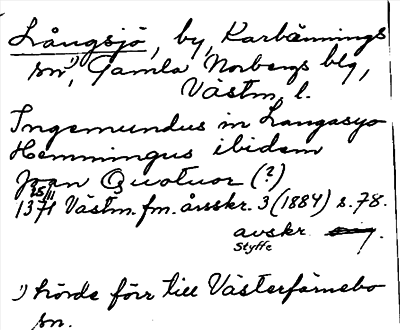 Långsjö, by, Karbennings
sn¹⁾, Gamla Norbergs blg,
Västm. l.
Ingemundus in Langasyo
Hemmingus ibidem
Joan Quatuor (?)
25/11
1371 Västm. fm. årsskr. 3 (1884) s. 78.
avskr.
Styffe
¹⁾ hörde förr till Västerfärnebo
sn.